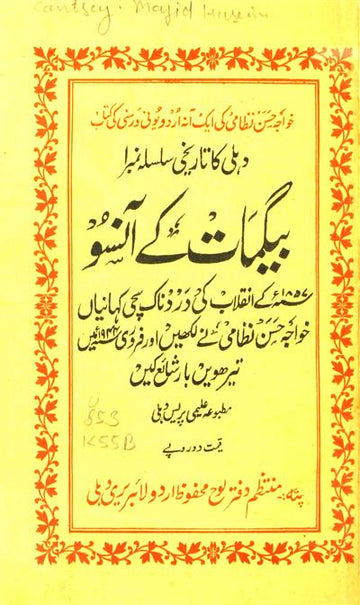 Courtesy. Majid Hussain
خواجہ حسن نظامی کی ایک آنہ اردو یونیورسٹی کی کتاب
دہلی کا تاریخی سلسلہ نمبر ۱
بیگمات کے آنسو
۱۸۵۷ء کے انقلاب کی دردناک سچی کہانیاں
خواجہ حسن نظامی نے لکھیں اور فروری ۱۹۴۴ء میں
تیرھویں بار شائع کیں
مطبوعہ علیمی پریس دہلی
قیمت دو روپے
U
853
K55B
پتہ:۔ منتظم دفتر لوح محفوظ اردو لائبریری دہلی